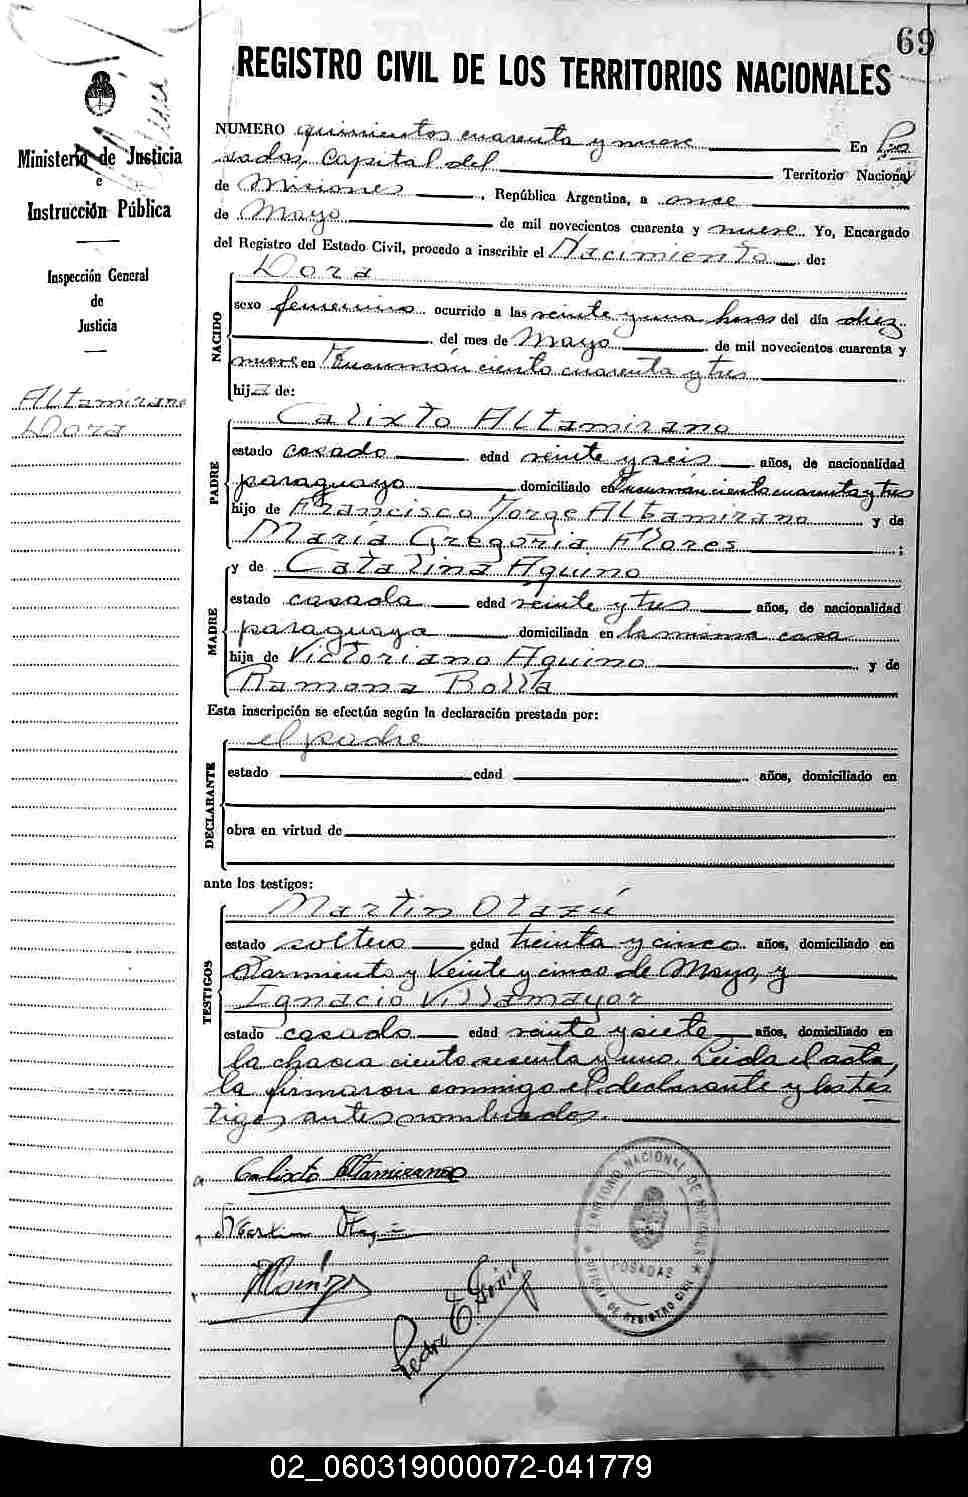 69
REGISTRO CIVIL DE LOS TERRITORIOS NACIONALES
Ministerio de Justicia
e
Instrucción Pública
Inspección General
de
Justicia
Altamirano
Dora
NUMERO quinientos cuarenta y nueve En Po
sadas, Capital del Territorio Nacional
de Misiones, República Argentina, a once
de Mayo de mil novecientos cuarenta y nueve. Yo, Encargado
del Registro del Estado Civil, procedo a inscribir el Nacimiento de:
NACIDO
Dora
sexo femenino ocurrido a las veinte y una horas del día diez
del mes de Mayo de mil novecientos cuarenta y
nueve en Tucumán ciento cuarenta y tres
hija de:
PADRE
Calixto Altamirano
estado casado edad veinte y seis años, de nacionalidad
paraguayo domiciliado en Tucumán ciento cuarenta y tres
hijo de Francisco Jorge Altamirano y de
María Gregoria Flores;
MADRE
y de Catalina Aquino
estado casada edad veinte y tres años, de nacionalidad
paraguaya domiciliada en la misma casa
hija de Victoriano Aquino y de
Ramona Bolla
Esta inscripción se efectúa según la declaración prestada por:
DECLARANTE
el padre
estado edad años, domiciliado en
obra en virtud de
ante los testigos:
TESTIGOS
Martin Otazú
estado soltero edad treinta y cinco años, domiciliado en
Sarmiento y Veinte y cinco de Mayo, y
Ignacio Villamayor
estado casado edad veinte y siete años, domiciliado en
la chacra ciento sesenta y uno. Leida el acta,
la firmaron conmigo el declarante y los tes
tigos antes nombrados.
Calixto Altamirano
Martin Otazú
Pedro E.
TERRITORIO NACIONAL DE MISIONES
POSADAS
DE REGISTRO CIVIL
02_060319000072-041779